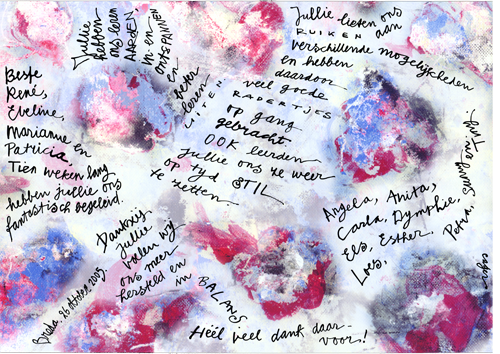 Beste
René,
Eveline,
Marianne en
Patricia,
Tien weken lang
hebben jullie ons
fantastisch begeleid.
Jullie
hebben
ons leren
AARDEN,
in- en
ONTSPANNEN
en
beter
leren
UITEN.
Jullie lieten ons
RUIKEN aan
verschillende mogelijkheden
en hebben
daardoor
veel goede
RADERTJES
op gang
gebracht
OOK leerden
jullie ons ze weer
op tijd STIL
te zetten.
Dankzij
jullie
voelen wij
ons meer
hersteld en
in BALANS
Héél veel dank daar-
voor!
Angela, Anita,
Carla, Dymphie,
Els, Esther,
Loes,
Petra,
Breda, 26 oktober 2005.